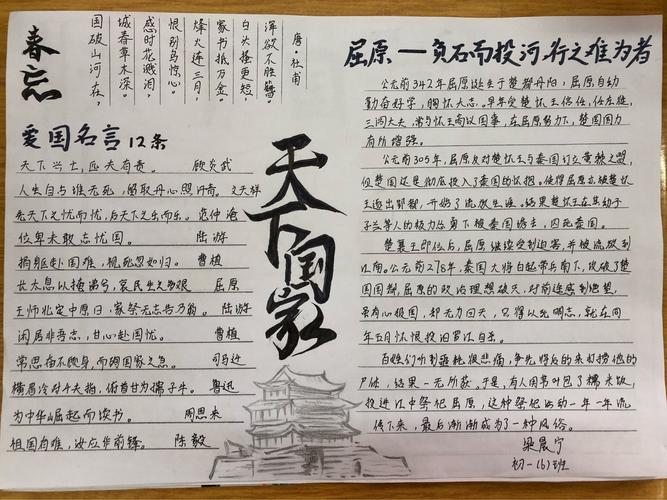 春忘
国破山河在,
城春草木深。
感时花溅泪,
恨别鸟惊心。
烽火连三月,
家书抵万金。
白头搔更短,
浑欲不胜簪。
唐·杜甫
爱国名言12条
天下兴亡,匹夫有责。 顾炎武
人生自古谁无死,留取丹心照汗青。文天祥
先天下之忧而忧,后天下之乐而乐。范仲淹
位卑未敢忘忧国。 陆游
捐躯赴国难,视死忽如归。 曹植
长太息以掩涕兮,哀民生之多艰 屈原
王师北定中原日,家祭无忘告乃翁。陆游
闲居非吾志,甘心赴国忧。 曹植
常思奋不顾身,而殉国家之急。 司马迁
横眉冷对千夫指,俯首甘为孺子牛。鲁迅
为中华崛起而读书。 周恩来
祖国有难,汝应作前锋。 陈毅
天下国家
屈原——负石而投河,行之难为者
公元前342年屈原诞生于楚都丹阳,屈原自幼
勤奋好学,胸怀大志。早年受楚怀王信任,任左徒,
三闾大夫,常与怀王商议国事,在屈原努力下,楚国国力
有所增强。
公元前305年,屈原反对楚怀王与秦国订立黄棘之盟,
但楚国还是彻底投入了秦国的怀抱。使得屈原亦被楚怀
王逐出郢都,开始了流放生涯。结果楚怀王在其幼子
子兰等人的极力怂恿下被秦国诱去,囚死秦国。
楚襄王即位后,屈原继续受到迫害,并被流放到
江南。公元前278年,秦国大将白起带兵南下,攻破了楚
国国都,屈原的政治理想破灭,对前途感到绝望,
虽有心报国,却无力回天,只得以死明志,就在同
年五月怀恨投汨罗江自杀。
百姓们听到噩耗很悲痛,争先恐后的来打捞他的
尸体,结果一无所获。于是,有人用苇叶包了糯米饭,
投进江中祭祀屈原,这种祭祀活动一年一年流
传下来,最后渐渐成为了一种风俗。
梁晨宁
初一(6)班